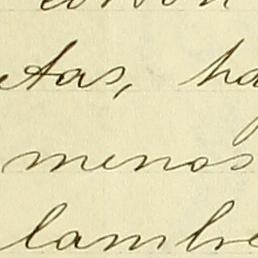 tas, ha
menos
lambre